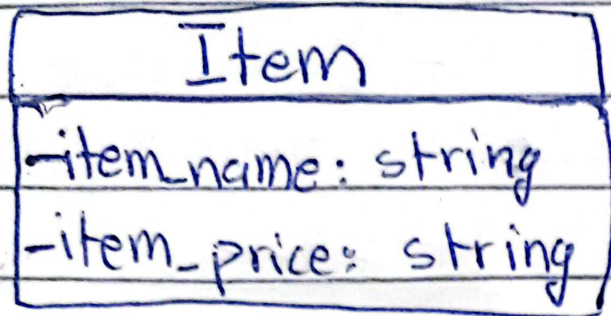 Item
-item_name: string
-item_price: string